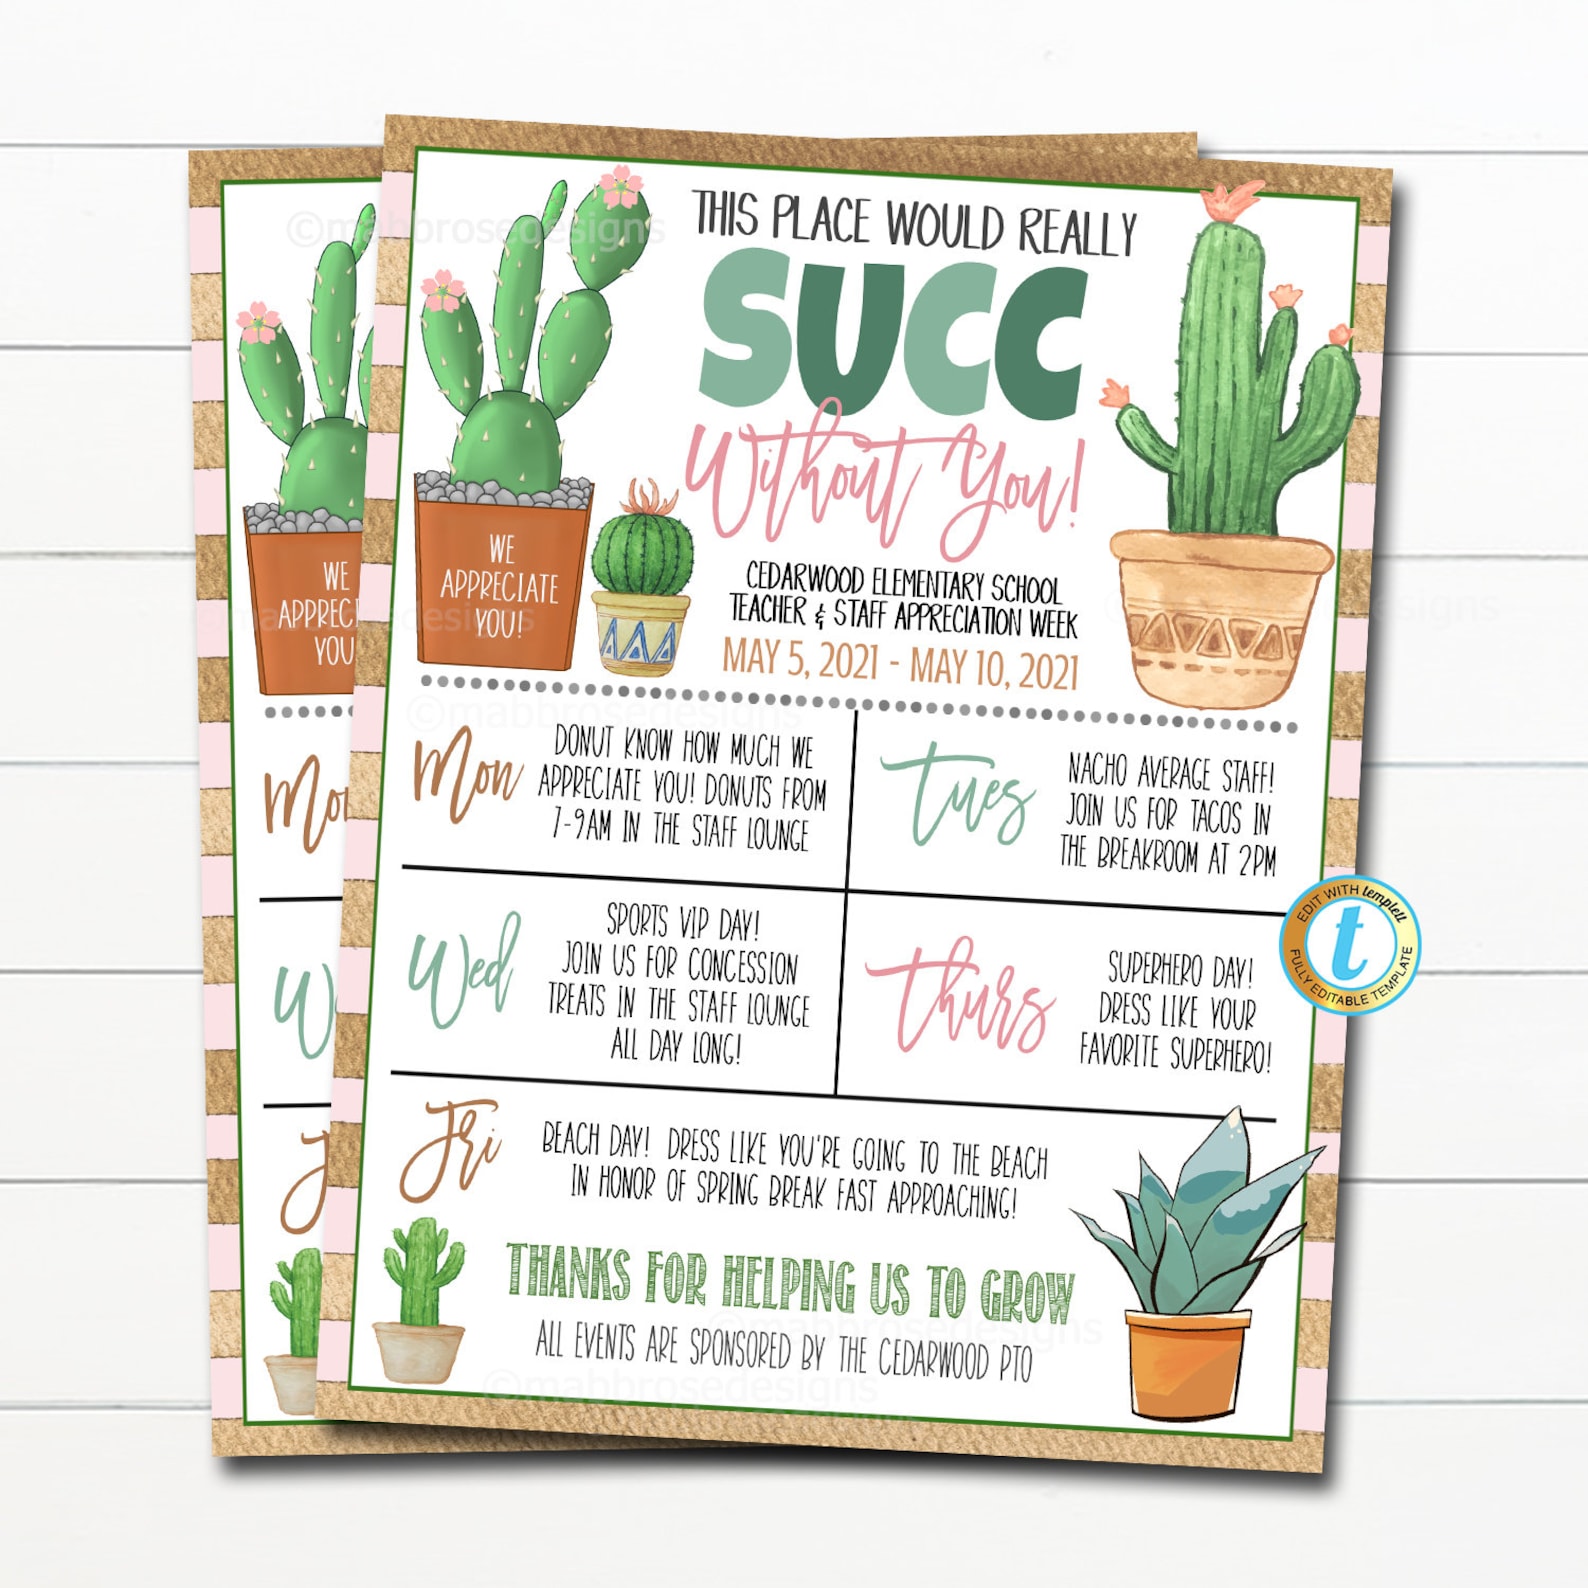 THIS PLACE WOULD REALLY
SUCC
Without You!
WE
APPRECIATE
YOU!
CEDARWOOD ELEMENTARY SCHOOL
TEACHER & STAFF APPRECIATION WEEK
MAY 5, 2021 - MAY 10, 2021
Mon
DONUT KNOW HOW MUCH WE
APPRECIATE YOU! DONUTS FROM
7-9AM IN THE STAFF LOUNGE
Tues
NACHO AVERAGE STAFF!
JOIN US FOR TACOS IN
THE BREAKROOM AT 2PM
Wed
SPORTS VIP DAY!
JOIN US FOR CONCESSION
TREATS IN THE STAFF LOUNGE
ALL DAY LONG!
Thurs
SUPERHERO DAY!
DRESS LIKE YOUR
FAVORITE SUPERHERO!
Fri
BEACH DAY! DRESS LIKE YOU'RE GOING TO THE BEACH
IN HONOR OF SPRING BREAK FAST APPROACHING!
THANKS FOR HELPING US TO GROW
ALL EVENTS ARE SPONSORED BY THE CEDARWOOD PTO
EDIT WITH templett
t
FULLY EDITABLE TEMPLATE
WE
APPRECI
YOU
Mo
W
©mabbrosedesigns
©mabbrosedesigns
©mabbrosedesigns